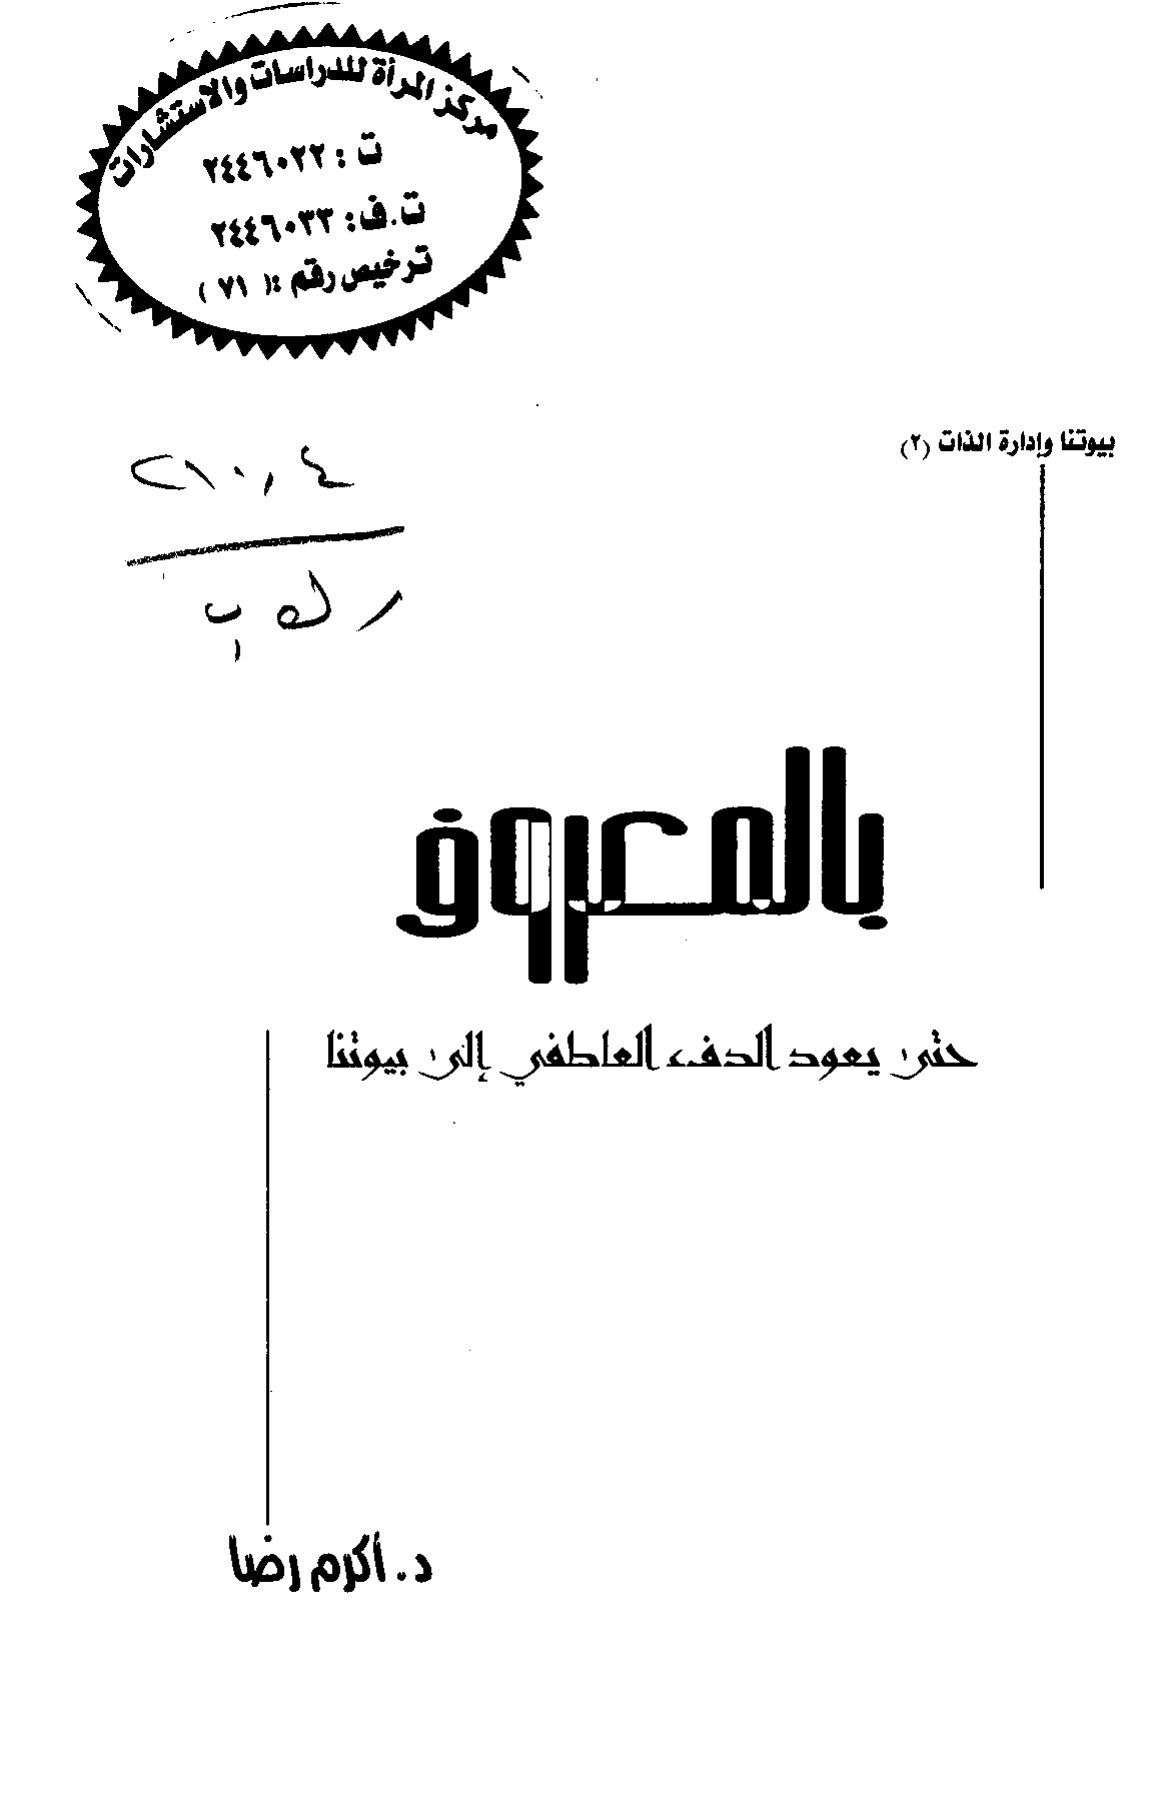 مركز المرأة للدراسات والاستشارات
ت : ٢٤٤٦٠٢٢
ت.ف: ٢٤٤٦٠٣٣
ترخيص رقم :( ٧١ )
بيوتنا وإدارة الذات (٢)
٢١٠,٤
ر ك ب
بالمعروف
حتى يعود الدفء العاطفي إلى بيوتنا
د. أكرم رضا